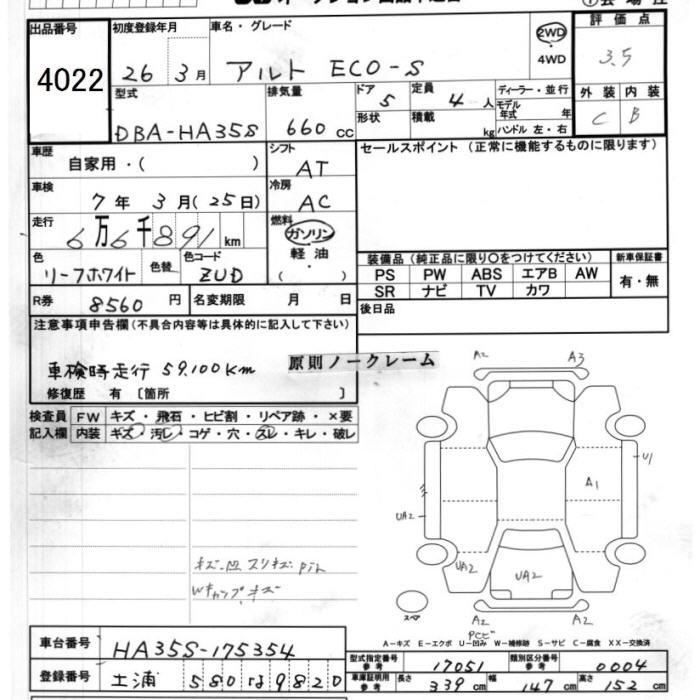 出品番号
4022
初度登録年月
26 3月
車名・グレード
アルト ECO-S
2WD
・
4WD
評価点
3.5
外装 内装
C B
型式
DBA-HA35S
排気量
660 cc
ドア
5
定員
4 人
形状
積載
kg
ディーラー・並行
モデル年式 年
ハンドル 左・右
車歴
自家用・( )
シフト
AT
セールスポイント (正常に機能するものに限ります)
車検
7年 3月(25日)
冷房
AC
走行
6万6千891km
燃料
ガソリン
軽油
・
( )
色
リーフホワイト
色替
色コード
ZUD
装備品 (純正品に限り〇をつけてください)
PS PW ABS エアB AW
SR ナビ TV カワ
新車保証書
有・無
R券
8560円
名変期限 月 日
後日品
注意事項申告欄(不具合内容等は具体的に記入して下さい)
車検時走行 59.100Km
原則ノークレーム
修復歴 有 〔箇所 〕
検査員記入欄
FW キズ・飛石・ヒビ割・リペア跡・×要
内装 キズ・汚レ・コゲ・穴・スレ・キレ・破レ
キズ.凹 スリキズ
Wキャップキズ
A2
A3
U1
A1
UA2
UA2
UA2
スペア
A2
A2
PCビ
A-キズ E-エクボ U-凹み W-補修跡 S-サビ C-腐食 XX-交換済
車台番号
HA35S-175354
型式指定番号 参考
17051
類別区分番号 参考
0004
登録番号
土浦 580 は 9820
車庫証明用 参考
長さ 339cm 幅 147cm 高さ 152cm